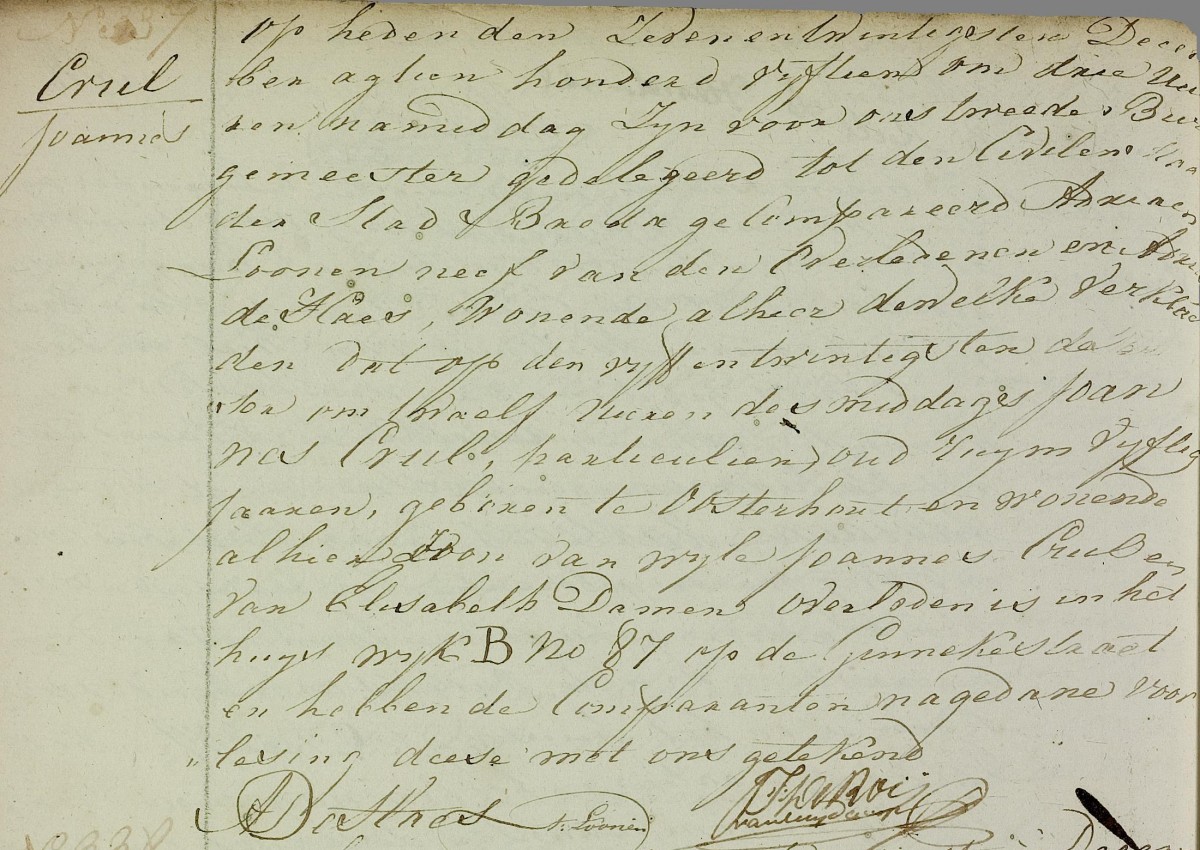 No 337
Crul
Joannes
op heden den Zevenentwintigsten Decem
ber agtien honderd vyftiend om drie Uu
ren namiddag Zyn voor ons tweede Bur
gemeester gedelegeerd tot den Civilen
der Stad Breda geCompareerd Adriaen
Loonen neef van den Overledenen en
de Haes, Wonende alhier dewelke Verklae
den dat op den vyffentwintigsten de
ser om twaelf Uuren des middags Joan
nes Crul, particulier, oud ruym Vyftig
Jaaren, geboren te Oosterhout en wonende
alhier Zoon van wyle Joannes Crul en
van Elisabeth Damen overleden is in het
huys wyk B No 87 op de Ginnekestraet
en hebben de Comparanten nagedane voor
lesing deese met ons getekend
A De Haes
A. Loonen